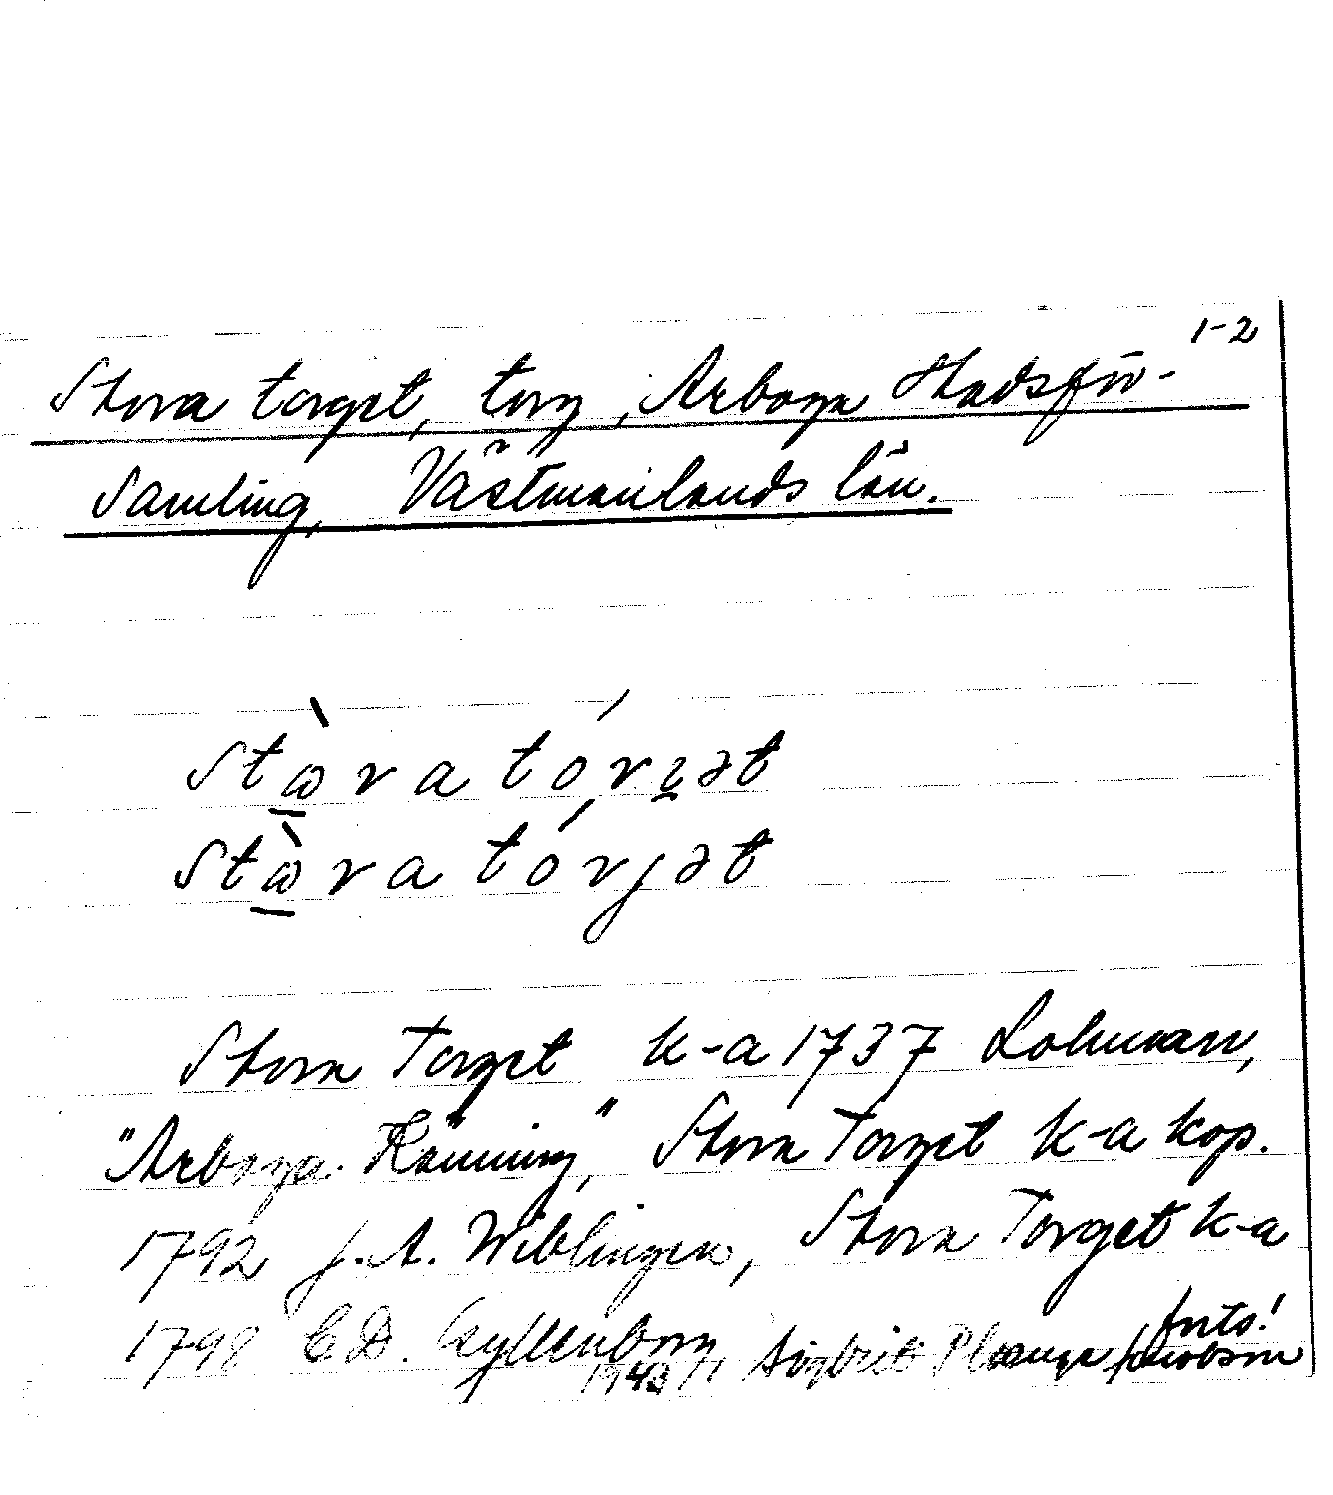 1-2
Stora torget, torg, Arboga Stadsför-
samling, Västmanlands län.
stɷ̀ra tórɡ̨ət
stɷ̀ra tórjət
Stora Torget k-a 1737 Lohman,
"Arboga Känning", Stora Torget k-a kop.
1792 J. A. Wiblingen, Stora Torget k-a
1798 C D. Gyllenborg forts!
1943 Sigbrit Plænge Jacobson